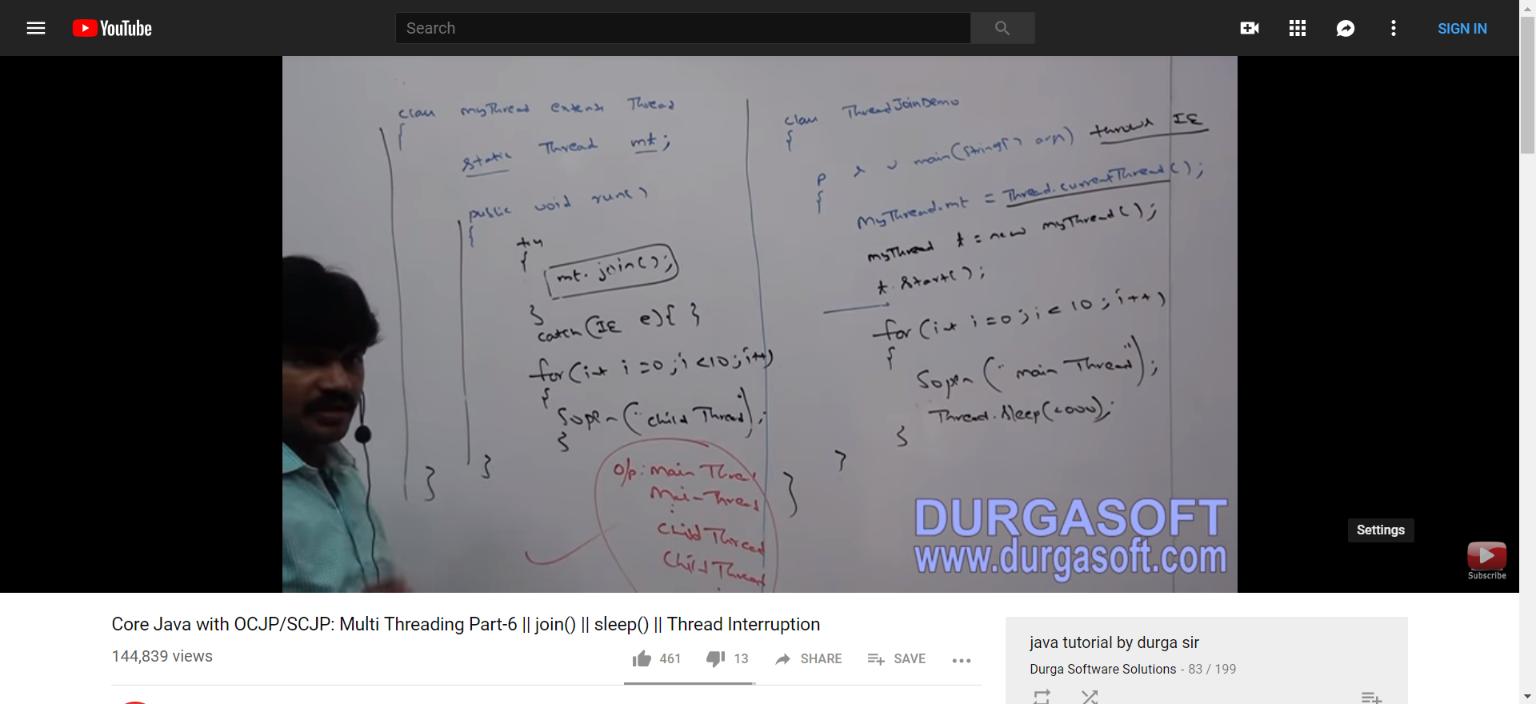 YouTube
Search
SIGN IN
class myThread extends Thread
{
static Thread mt;
public void run()
{
try
{
mt.join();
}
catch(IE e){ }
for(int i=0;i<10;i++)
{
Sopln("child Thread");
}
}
}
class ThreadJoinDemo
{
p s v main(String[] args) throws IE
{
MyThread.mt = Thread.currentThread();
myThread t = new myThread();
t.start();
for(int i=0;i<10;i++)
{
Sopln("main Thread");
Thread.sleep(2000);
}
}
}
o/p: Main Thread
Main Thread
Child Thread
Child Thread
DURGASOFT
www.durgasoft.com
Settings
Subscribe
Core Java with OCJP/SCJP: Multi Threading Part-6 || join() || sleep() || Thread Interruption
144,839 views
461 13 SHARE SAVE
java tutorial by durga sir
Durga Software Solutions - 83 / 199